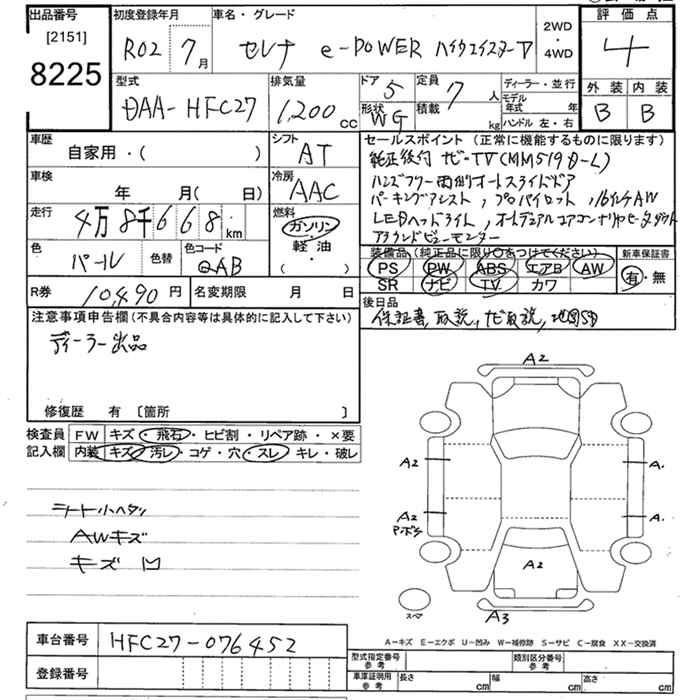 出品番号
[2151]
8225
初度登録年月
R02 7月
車名・グレード
セレナ e-POWER ハイウェイスターV
2WD
・
4WD
評価点
4
外装 内装
B B
型式
DAA-HFC27
排気量
1,200 cc
ドア 5
形状 WG
定員 7 人
積載 kg
ディーラー・並行
モデル年式 年
ハンドル 左・右
車歴
自家用・( )
シフト
AT
車検
年 月( 日)
冷房
AAC
走行
4万8千668 km
燃料
ガソリン
軽油・
( ・ )
色
パール
色替
色コード
QAB
R券
10,490円
名変期限 月 日
セールスポイント(正常に機能するものに限ります)
純正後付ナビ-TV(MM519D-L)
ハンズフリー両側オートスライドドア
パーキングアシスト, プロパイロット, 16インチAW
LEDヘッドライト, オートデュアルエアコン
アラウンドビューモニター
装備品(純正品に限り○をつけてください)
PS PW ABS エアB AW
SR ナビ TV カワ
新車保証書
有・無
後日品
保証書, 取説, ナビ取説, 地図SD
注意事項申告欄(不具合内容等は具体的に記入して下さい)
ディーラー出品
修復歴 有 [箇所 ]
検査員記入欄
FW キズ・飛石・ヒビ割・リペア跡・×要
内装 キズ・汚レ・コゲ・穴・スレ・キレ・破レ
シート小ヘタリ
AWキズ
キズ凹
A2
A2
A.
A2
A.
A2
スペア
A3
A-キズ E-エクボ U-凹み W-補修跡 S-サビ C-腐食 XX-交換済
車台番号
HFC27-076452
登録番号
型式指定番号
参考
類別区分番号
参考
車庫証明用
参考
長さ cm 幅 cm 高さ cm